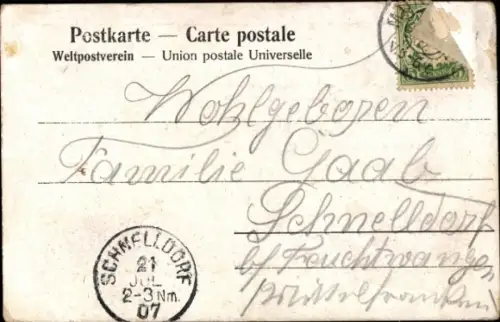 Postkarte — Carte postale
Weltpostverein — Union postale Universelle
Wohlgeboren
Familie Gaab
Schnelldorf
b/ Feuchtwangen
Mittelfranken
SCHNELLDORF
21
JUL
2-3 Nm.
07